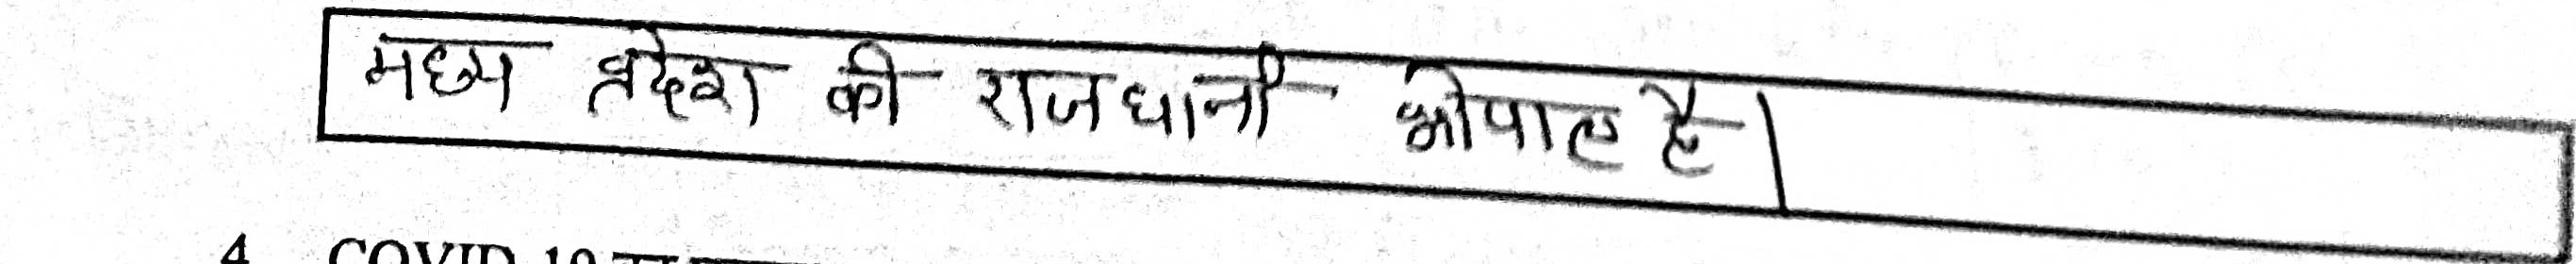 मध्य प्रदेश की राजधानी भोपाल है।
4 COVID 19